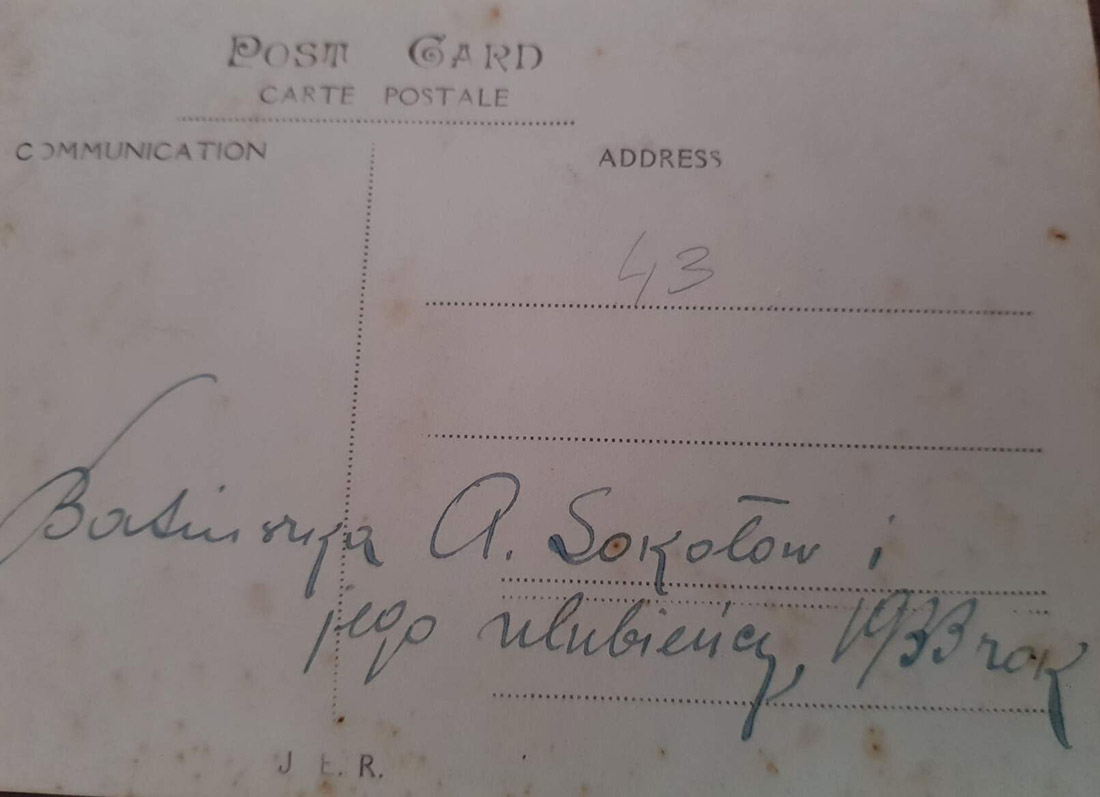 POST CARD
CARTE POSTALE
COMMUNICATION
ADDRESS
43
Batiuszka A. Sokołow i
jego ulubieńcy, 1933 rok
J E. R.